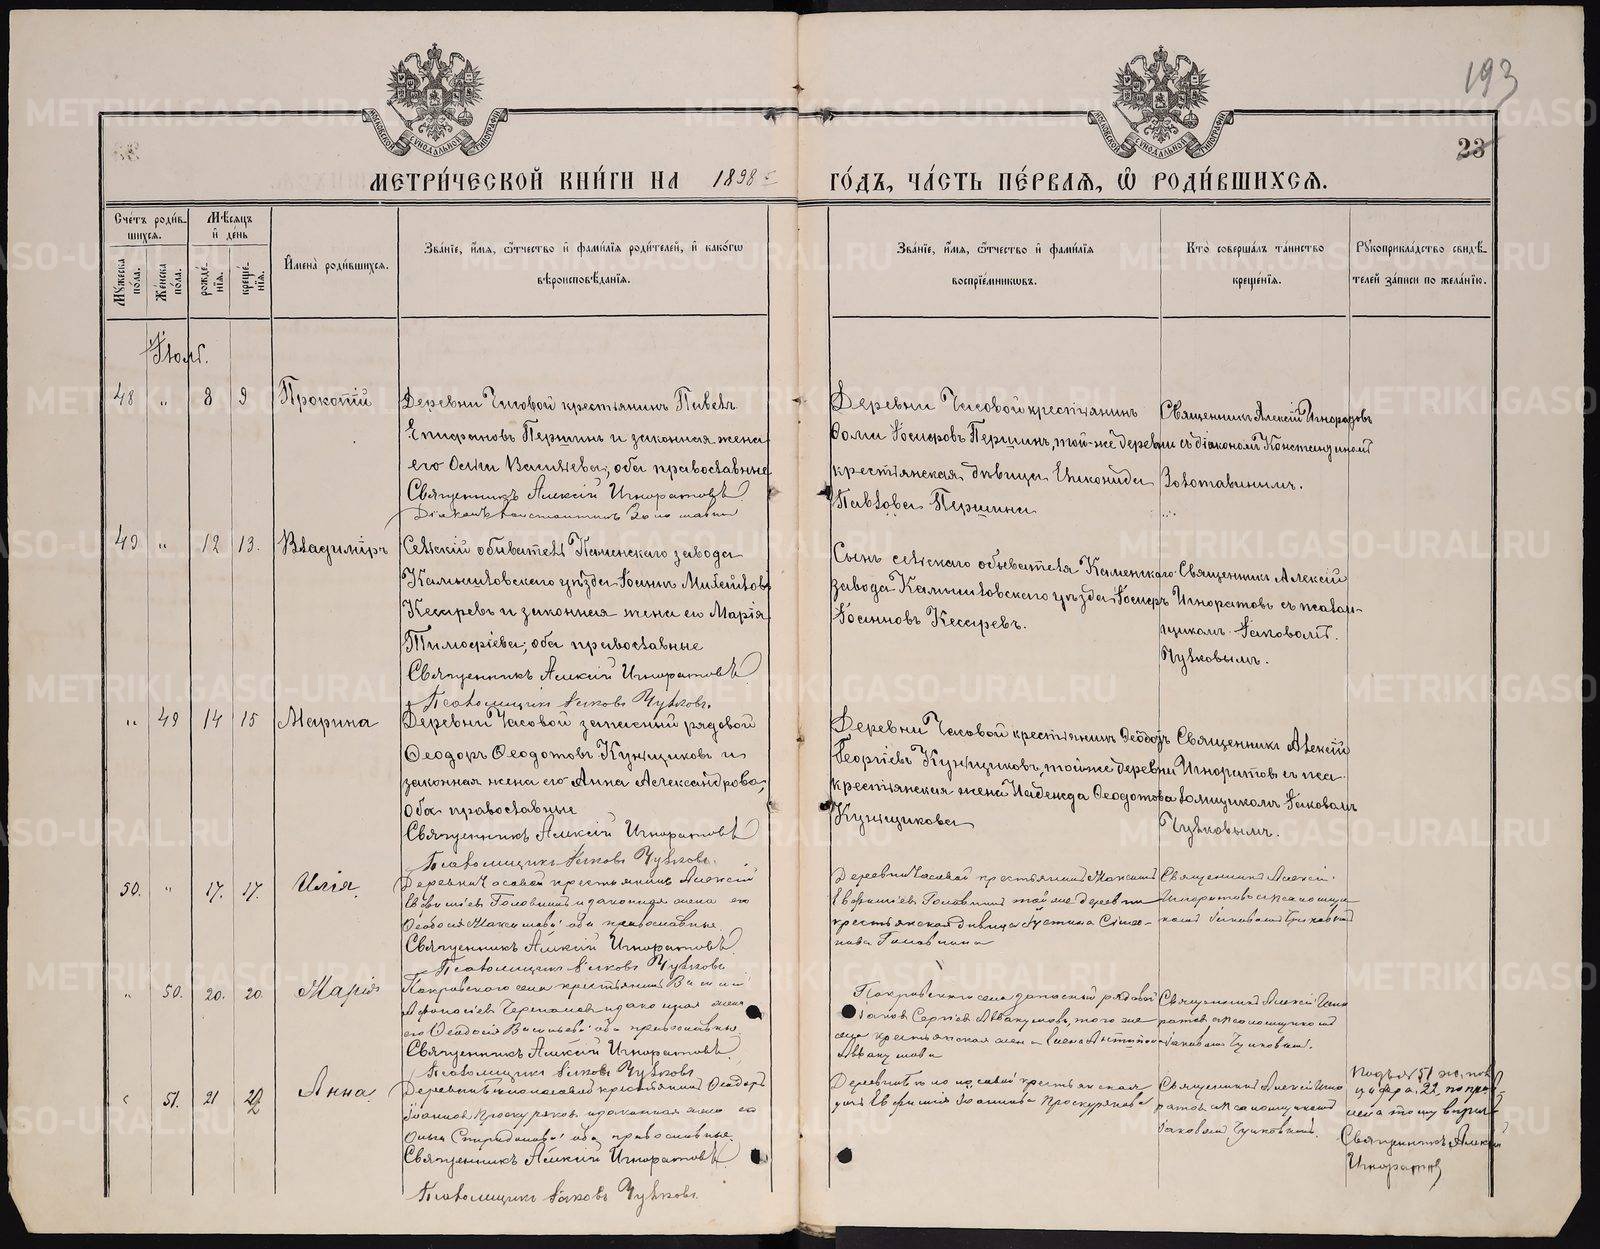 193
23
МЕТРИ́ЧЕСКОЙ КНИ́ГИ НА 1898 г
ГО́ДЪ, ЧА́СТЬ ПЕ́РВАѦ, Ѡ РОДИ́ВШИХСѦ.
Сче́тъ роди́в-
шихся.
Мѣ́сяцъ
и҆ де́нь
Мꙋ́жеска
по́ла.
Же́нска
по́ла.
рожде́-
нїя.
креще́-
нїя.
И҆мена̀ роди́вшихся.
Зва́нїе, и҆́мя, ѻ҆́тчество и҆ фами́лїя роди́телей, и҆ како́гѡ
вѣроисповѣ́данїя.
Зва́нїе, и҆́мя, ѻ҆́тчество и҆ фами́лїя
воспрїе́мникѡвъ.
Кто̀ соверша́лъ та́инство
креще́нїя.
Рꙋкоприкла́дство свидѣ́-
телей за́писи по жела́нїю.
Іюль.
48 " 8 9 Прокопій
Деревни Часовой крестьянинъ Павелъ
Епифановъ Першинъ и законная жена
его Анна Васильева; оба православные
Священникъ Алексій Игноратовъ
Діаконъ Константинъ Золотавинъ
Деревни Часовой крестьянинъ
Фома Іосифовъ Першинъ, той-же деревни
крестьянская дѣвица
Павлова Першина
Священникъ Алексій Игноратовъ
съ діакономъ Константиномъ
Золотавинымъ.
49 " 12 13. Владиміръ
Сельскій обыватель Каменскаго завода
Камышловскаго уѣзда Іоаннъ Михайловъ
Кесаревъ и законная жена его Марія
Тимофіева; оба православные
Священникъ Алексій Игноратовъ
Псаломщикъ Іаковъ Чулковъ.
Сынъ сельскаго обывателя Каменскаго
завода Камышловскаго уѣзда Іосифъ
Іоанновъ Кесаревъ.
Священникъ Алексій
Игноратовъ съ псалом-
щикомъ Іаковомъ
Чулковымъ.
" 49 14 15 Марина
Деревни Часовой запасный рядовой
Ѳеодоръ Ѳеодотовъ Кунщиковъ и
законная жена его Анна Александрова,
оба православные
Священникъ Алексій Игноратовъ
Псаломщикъ Іаковъ Чулковъ.
Деревни Часовой крестьянинъ Ѳеодоръ
Георгіевъ Кунщиковъ, той же деревни
крестьянская жена Надежда Ѳеодотова
Кунщикова
Священникъ Алексій
Игноратовъ съ пса-
ломщикомъ Іаковомъ
Чулковымъ.
50. " 17. 17. Илія.
Деревни Часовой крестьянинъ Алексій
Евфиміевъ Головинъ и законная жена его
Ѳеодосія Максимова оба православные.
Священникъ Алексій Игноратовъ
Псаломщикъ Іаковъ Чулковъ
Деревни Часовой крестьянинъ Максимъ
Евфиміевъ Головинъ той же деревни
крестьянская дѣвица Іустина Симео-
нова Головина
Священникъ Алексій
Игноратовъ съ псаломщи-
комъ Іаковомъ Чулковымъ
" 50. 20. 20 Марія
Покровскаго села крестьянинъ Василій
Аѳонасіевъ Черепановъ и законная жена
его Ѳеодосія Васильева оба православные.
Священникъ Алексій Игноратовъ
Псаломщикъ Іаковъ Чулковъ
Покровскаго села запасный рядовой
Іаковъ Сергіевъ Аввакумовъ, того же
села крестьянская жена Елена
Аввакумова
Священникъ Алексій Игно-
ратовъ съ псаломщикомъ
Іаковомъ Чулковымъ.
" 51. 21 22 Анна.
крестьянинъ Ѳеодоръ
Іоанновъ Проскуряковъ и законная жена его
Ольга Спиридонова оба православные.
Священникъ Алексій Игноратовъ
Псаломщикъ Іаковъ Чулковъ.
крестьянская
Евфимія Іоаннова Проскурякова
Священникъ Алексій Игно-
ратовъ съ псаломщикомъ
Іаковомъ Чулковымъ.
Подъ № 51 жен. пол.
цифра 22
Священникъ Алексій
Игноратовъ
METRIKI.GASO-URAL.RU